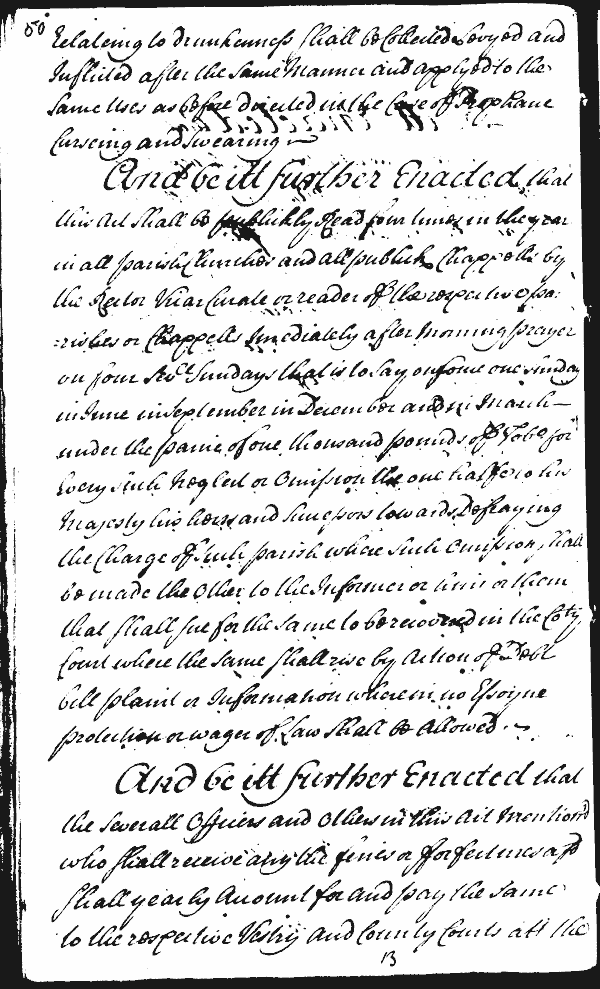 80
relateing to drunkenness shall be Collected Levyed and
Inflicted after the same Manner and applyed to the
same Uses as before directed in the Case of Prophane
Curseing and Swearing
And be itt further Enacted, that
this Act shall be publickly Read four times in the year
in all parish Churches and all publick Chappells by
the Rector Vicar Curate or reader of the respective pa:
=rishes or Chappells Imediately after Morning prayer
on four Sev.ll Sundays that is to Say on some one Sunday
in June in September in December and in March
under the paine of one thousand pounds of Tobo for
Every such Neglect or Omission the one halfe to his
Majesty his heirs and Successors towards Defraying
the Charge of Such parish where such Omission shall
be made the Other to the Informer or him or them
that shall sue for the same to be recovered in the Coty
Court where the same shall rise by Action of Debt
bill plaint or Information wherein no Essoyne
protection or wager of Law shall be Allowed.
And be itt further Enacted that
the severall Officers and Others in this Act mentiond
who shall receive any the fines or fforfeitures afd
shall yearly Account for and pay the same
to the respective Vestry and County Courts att the
13